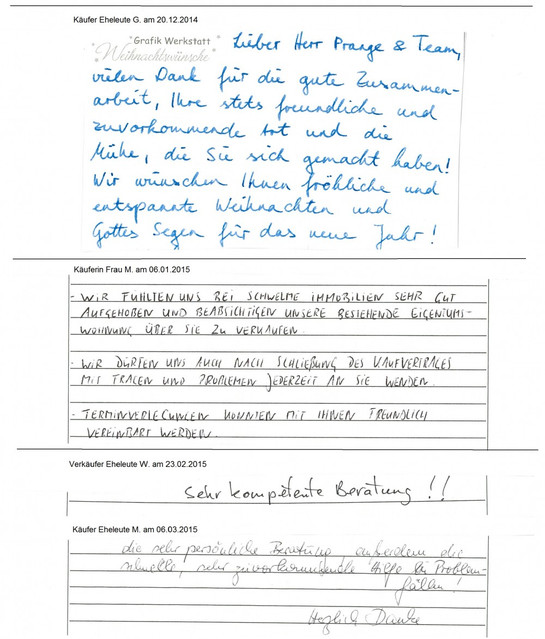 Käufer Eheleute G. am 20.12.2014
Grafik Werkstatt
Weihnachtswünsche
Lieber Herr Prange & Team,
vielen Dank für die gute Zusammen-
arbeit, Ihre stets freundliche und
zuvorkommende Art und die
Mühe, die Sie sich gemacht haben!
Wir wünschen Ihnen fröhliche und
entspannte Weihnachten und
Gottes Segen für das neue Jahr!
Käuferin Frau M. am 06.01.2015
- WIR FÜHLTEN UNS BEI SCHWELME IMMOBILIEN SEHR GUT
AUFGEHOBEN UND BEABSICHTIGEN UNSERE BESTEHENDE EIGENTUMS-
WOHNUNG ÜBER SIE ZU VERKAUFEN.
- WIR DÜRFEN UNS AUCH NACH SCHLIEßUNG DES KAUFVERTRAGES
MIT FRAGEN UND PROBLEMEN JEDERZEIT AN SIE WENDEN.
- TERMINVERLEGUNGEN KONNTEN MIT IHNEN FREUNDLICH
VEREINBART WERDEN.
Verkäufer Eheleute W. am 23.02.2015
Sehr kompetente Beratung!!
Käufer Eheleute M. am 06.03.2015
die sehr persönliche Beratung, außerdem die
schnelle, sehr zuvorkommende Hilfe bei Problem-
fällen!
Herzlich Danke